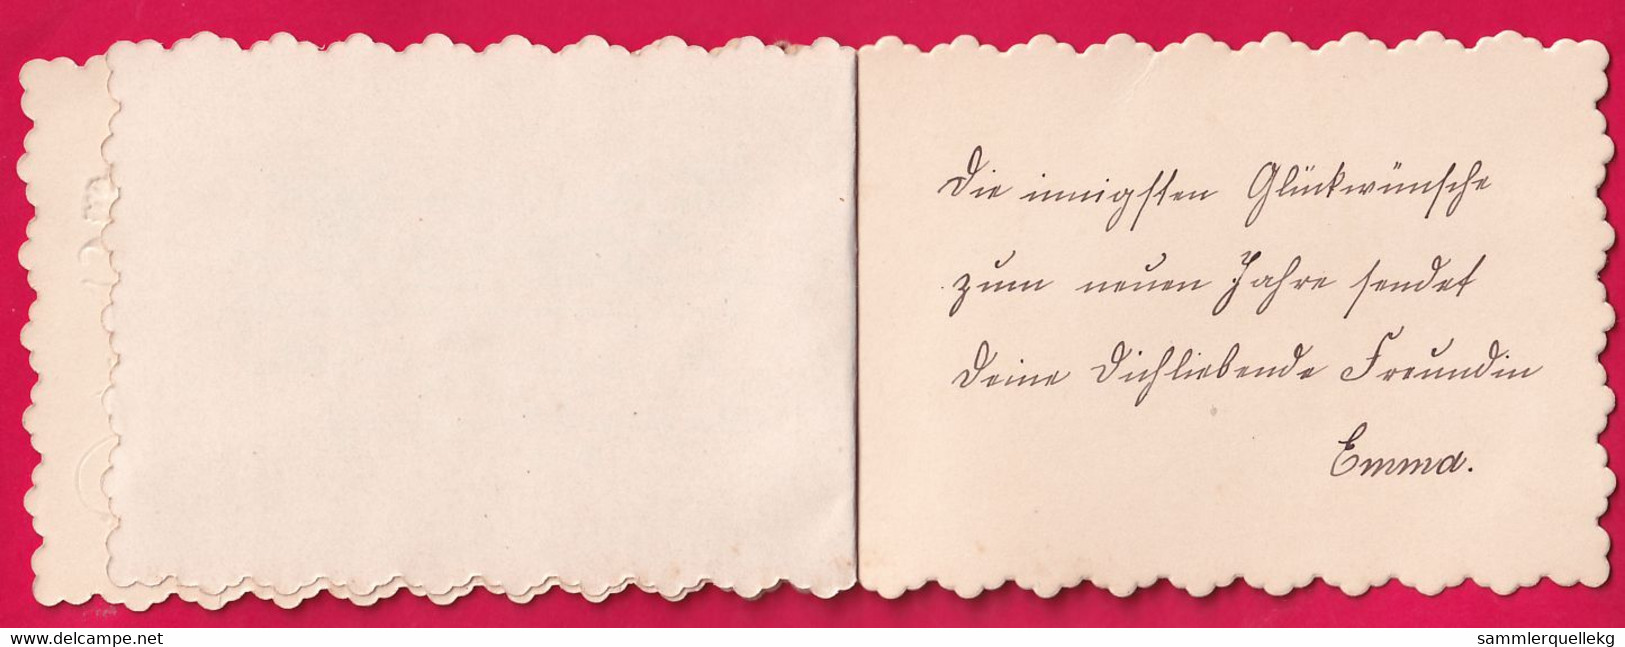 Die innigsten Glückwünsche
zum neuen Jahre sendet
Deine Dichliebende Freundin
Emma.
www.delcampe.net
sammlerquellekg